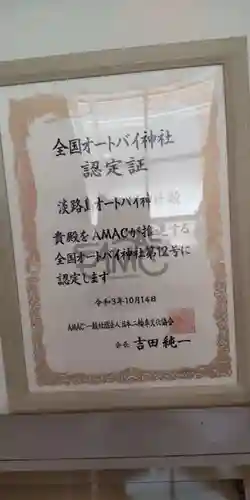 全国オートバイ神社
認定証
淡路島オートバイ神社殿
貴殿をAMACが推進する
全国オートバイ神社第12号に
認定します
令和3年10月14日
AMAC 一般社団法人 日本二輪車文化協会
会長 吉田純一